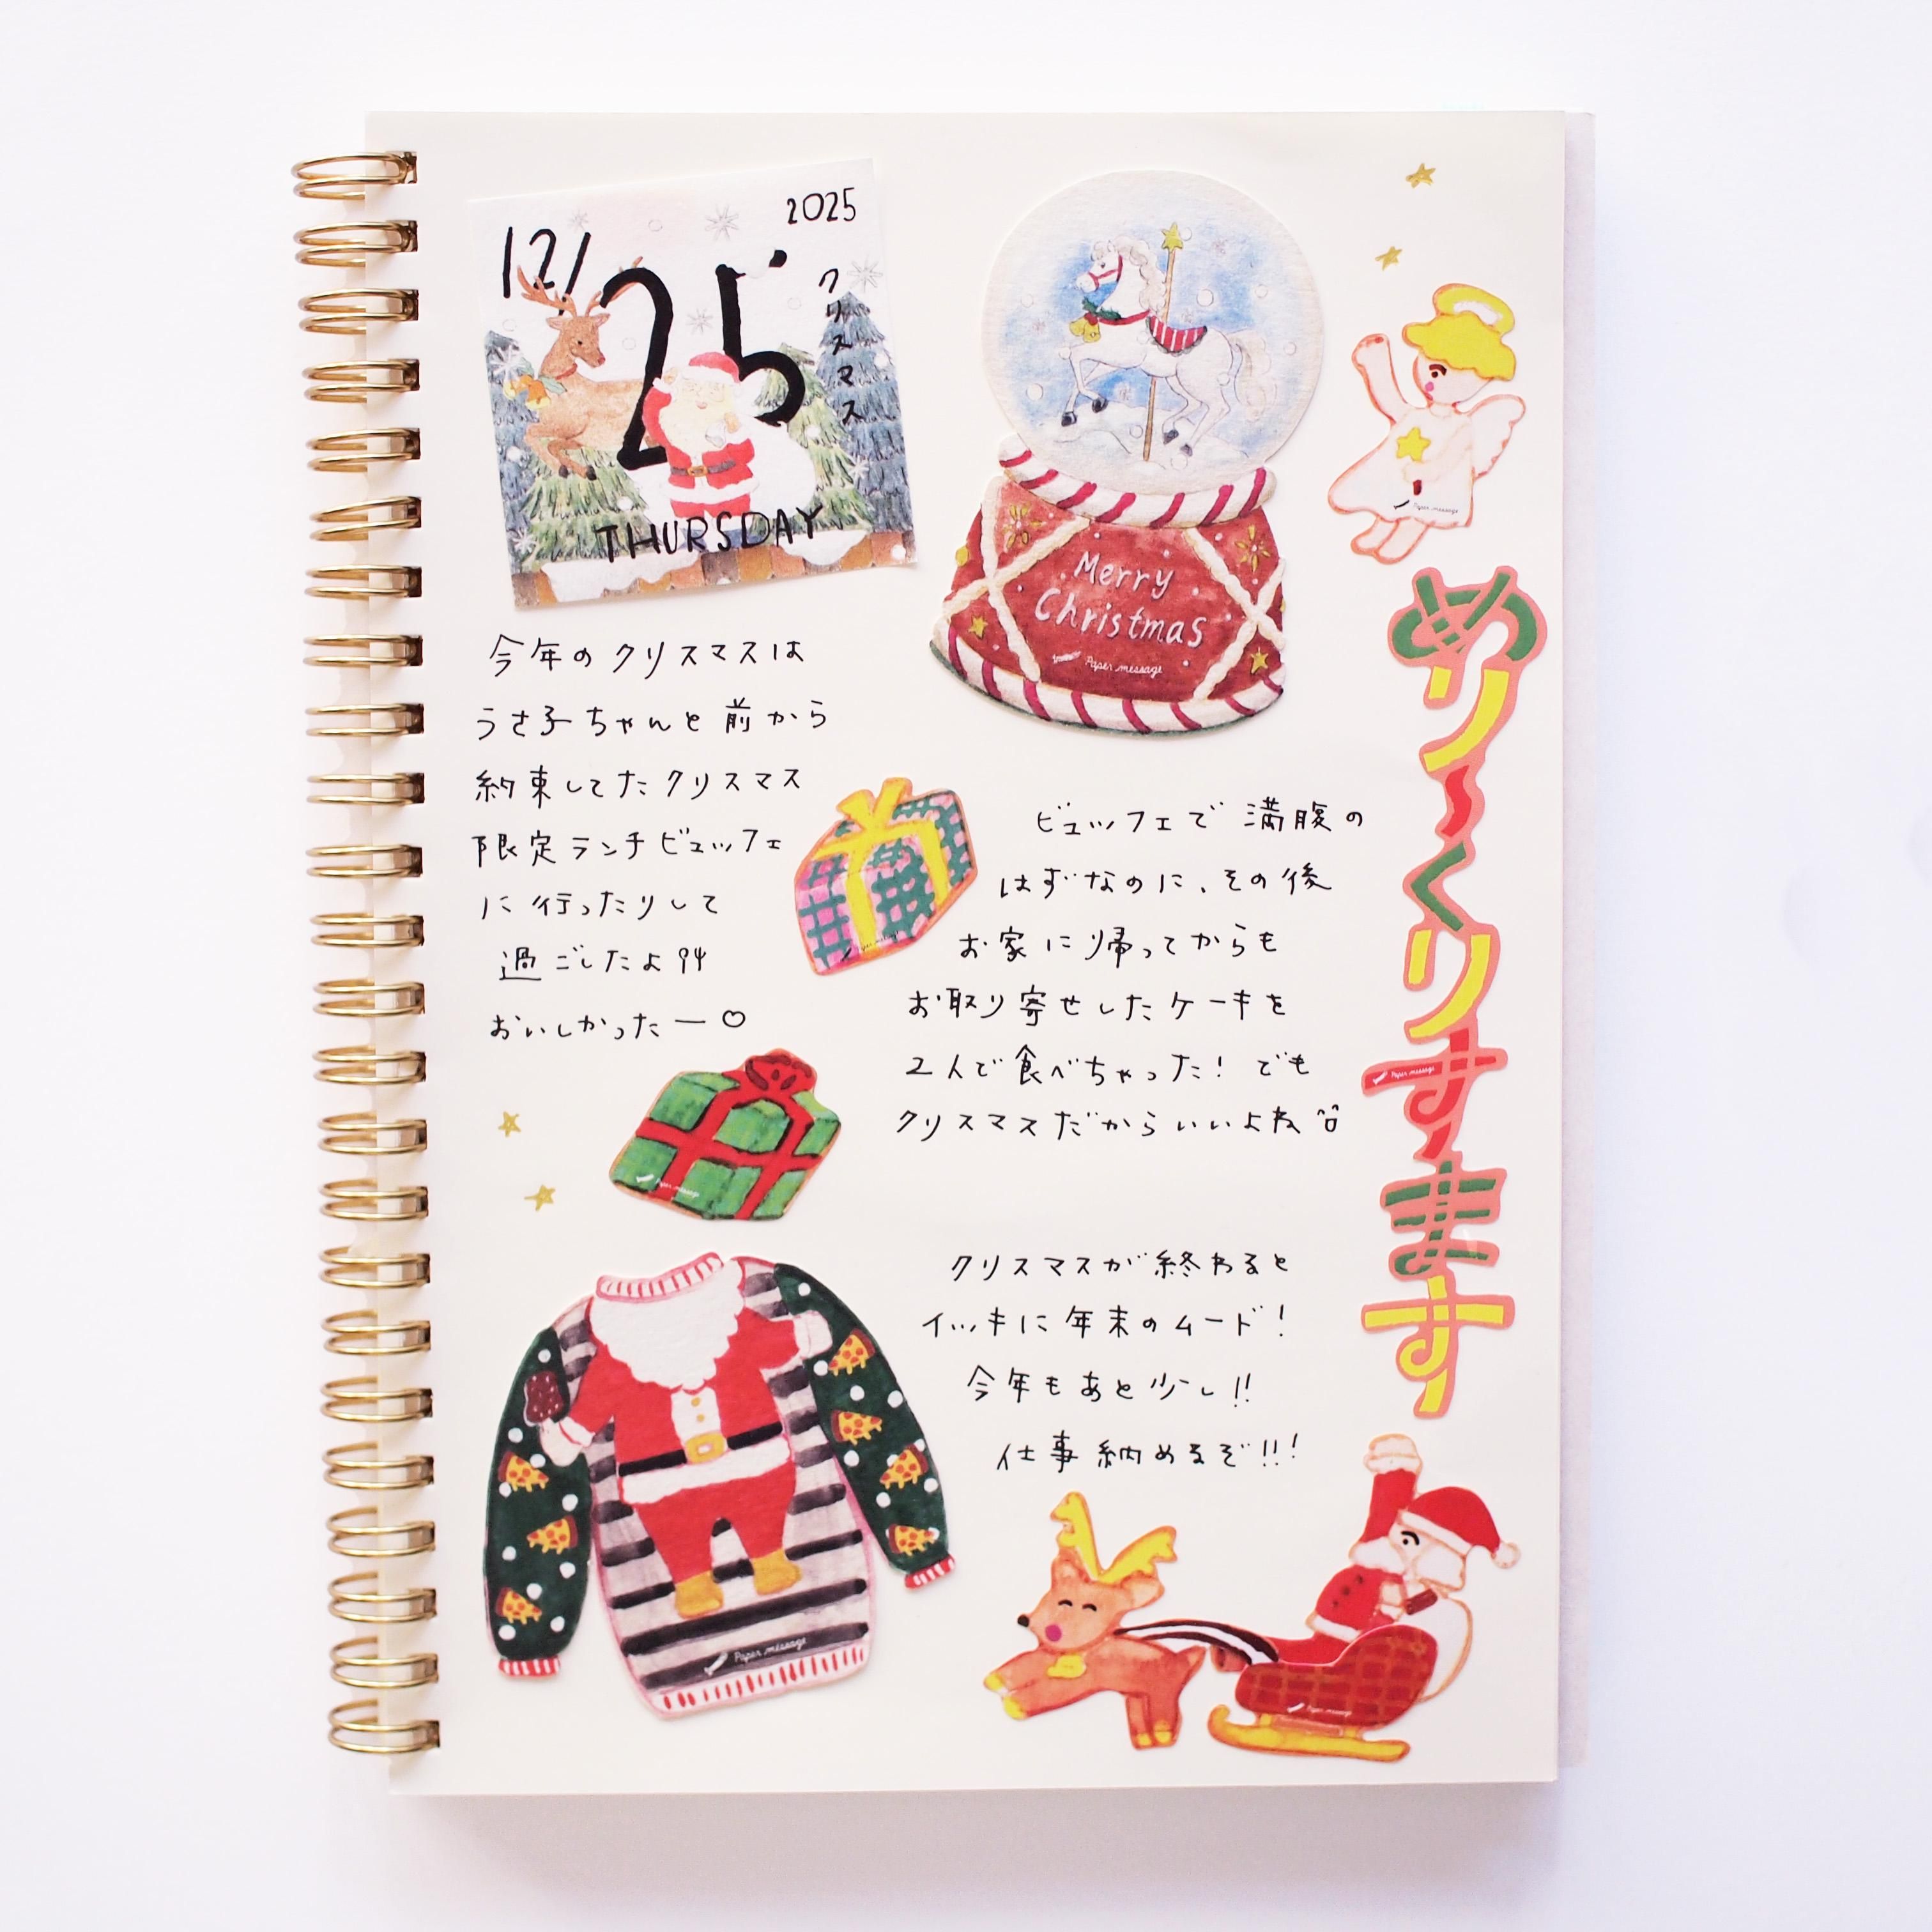 2025
12/
25
クリスマス
THURSDAY
今年のクリスマスは
うさ子ちゃんと前から
約束してたクリスマス
限定ランチビュッフェ
に行ったりして
過ごしたよ
おいしかったー♡
Merry
Christmas
Paper message
ビュッフェで満腹の
はずなのに、その後
お家に帰ってからも
お取り寄せしたケーキを
2人で食べちゃった！でも
クリスマスだからいいよね
クリスマスが終わると
イッキに年末のムード！
今年もあと少し!!
仕事納めるぞ!!!
Paper message
めり〜くりすます
Paper message
Paper message
Paper message
Paper message
Paper message